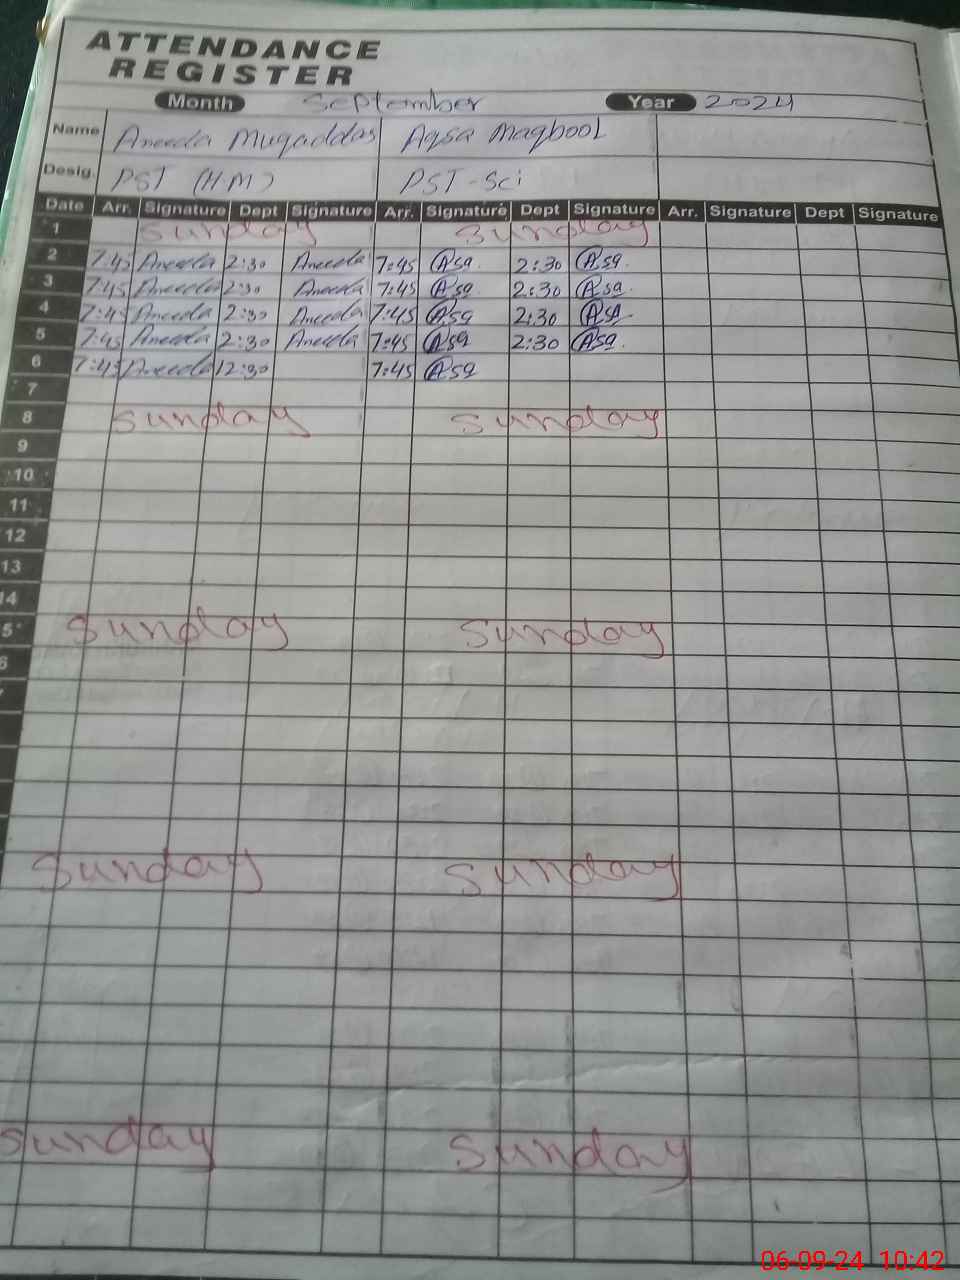 ATTENDANCE
REGISTER
Month September Year 2024
Name Aneeda Muqaddas Aqsa Maqbool
Desig. PST (HM) PST-Sci
Date Arr. Signature Dept Signature Arr. Signature Dept Signature Arr. Signature Dept Signature
1 Sunday Sunday
2 7:45 Aneeda 2:30 Aneeda 7:45 Asq. 2:30 Asq.
3 7:45 Aneeda 2:30 Aneeda 7:45 Asq. 2:30 Asq.
4 7:45 Aneeda 2:30 Aneeda 7:45 Asq 2:30 Asq
5 7:45 Aneeda 2:30 Aneeda 7:45 Asq 2:30 Asq.
6 7:45 Aneeda 12:30 7:45 Asq
7
8 Sunday Sunday
9
10
11
12
13
14
5 Sunday Sunday
6
Sunday Sunday
Sunday Sunday
06-09-24 10:42